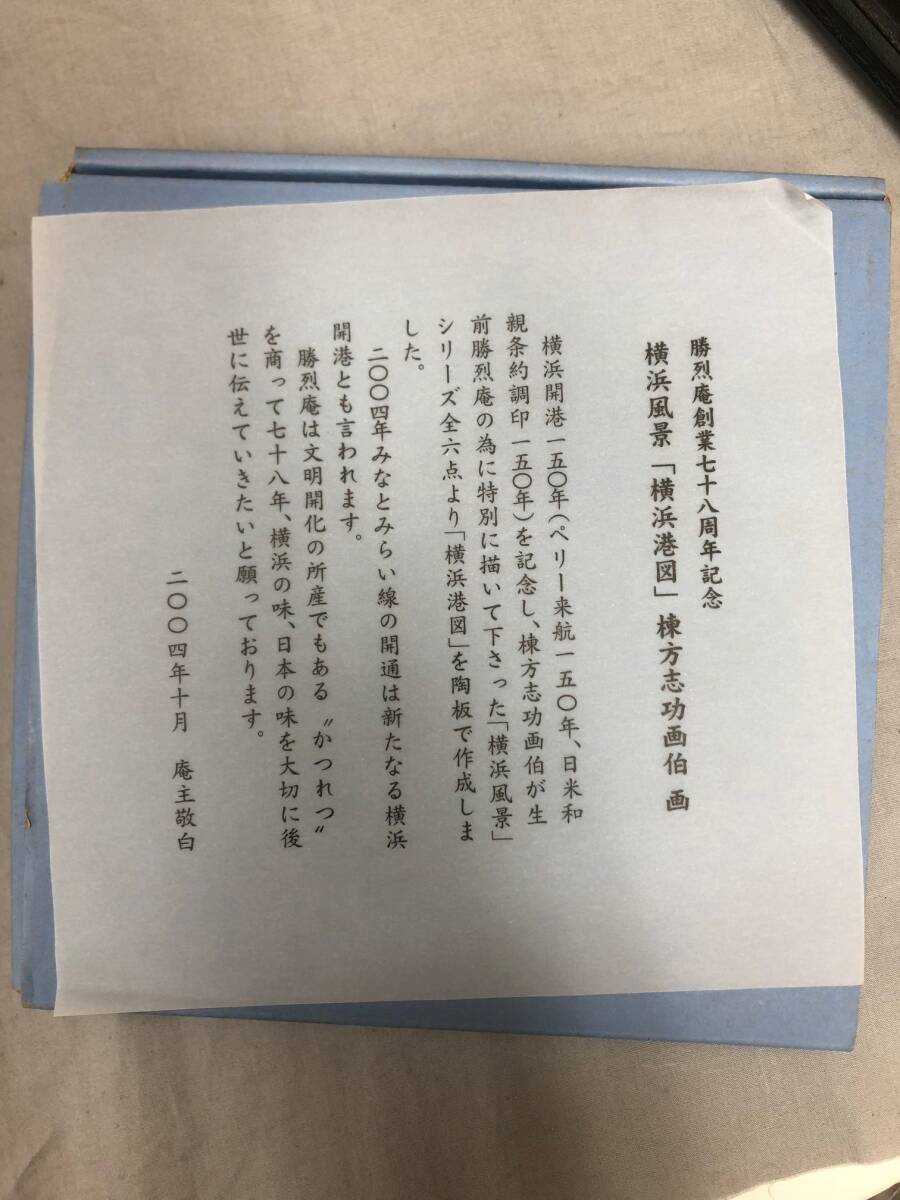 勝烈庵創業七十八周年記念
横浜風景「横浜港図」棟方志功画伯 画
横浜開港一五〇年(ペリー来航一五〇年、日米和
親条約調印一五〇年)を記念し、棟方志功画伯が生
前勝烈庵の為に特別に描いて下さった「横浜風景」
シリーズ全六点より「横浜港図」を陶板で作成しま
した。
二〇〇四年みなとみらい線の開通は新たなる横浜
開港とも言われます。
勝烈庵は文明開化の所産でもある〝かつれつ〟
を商って七十八年、横浜の味、日本の味を大切に後
世に伝えていきたいと願っております。
二〇〇四年十月 庵主敬白